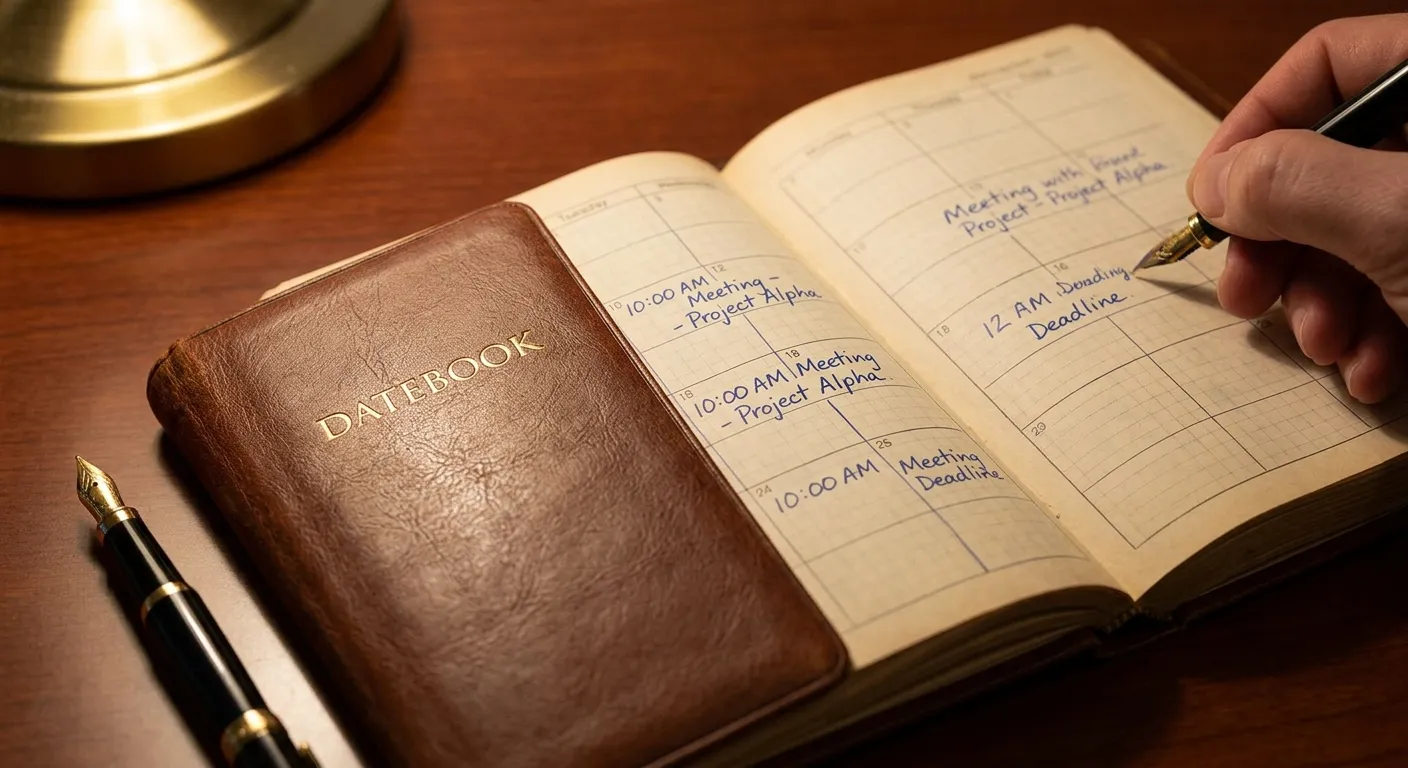 DATEBOOK
Tuesday
10
12
10:00 AM Meeting -
- Project Alpha
18
18
10:00 AM Meeting
- Project Alpha
24
25
10:00 AM Meeting
Deadline
Meeting with
Project - Project Alpha
16
18
12 AM
Deadline.
29